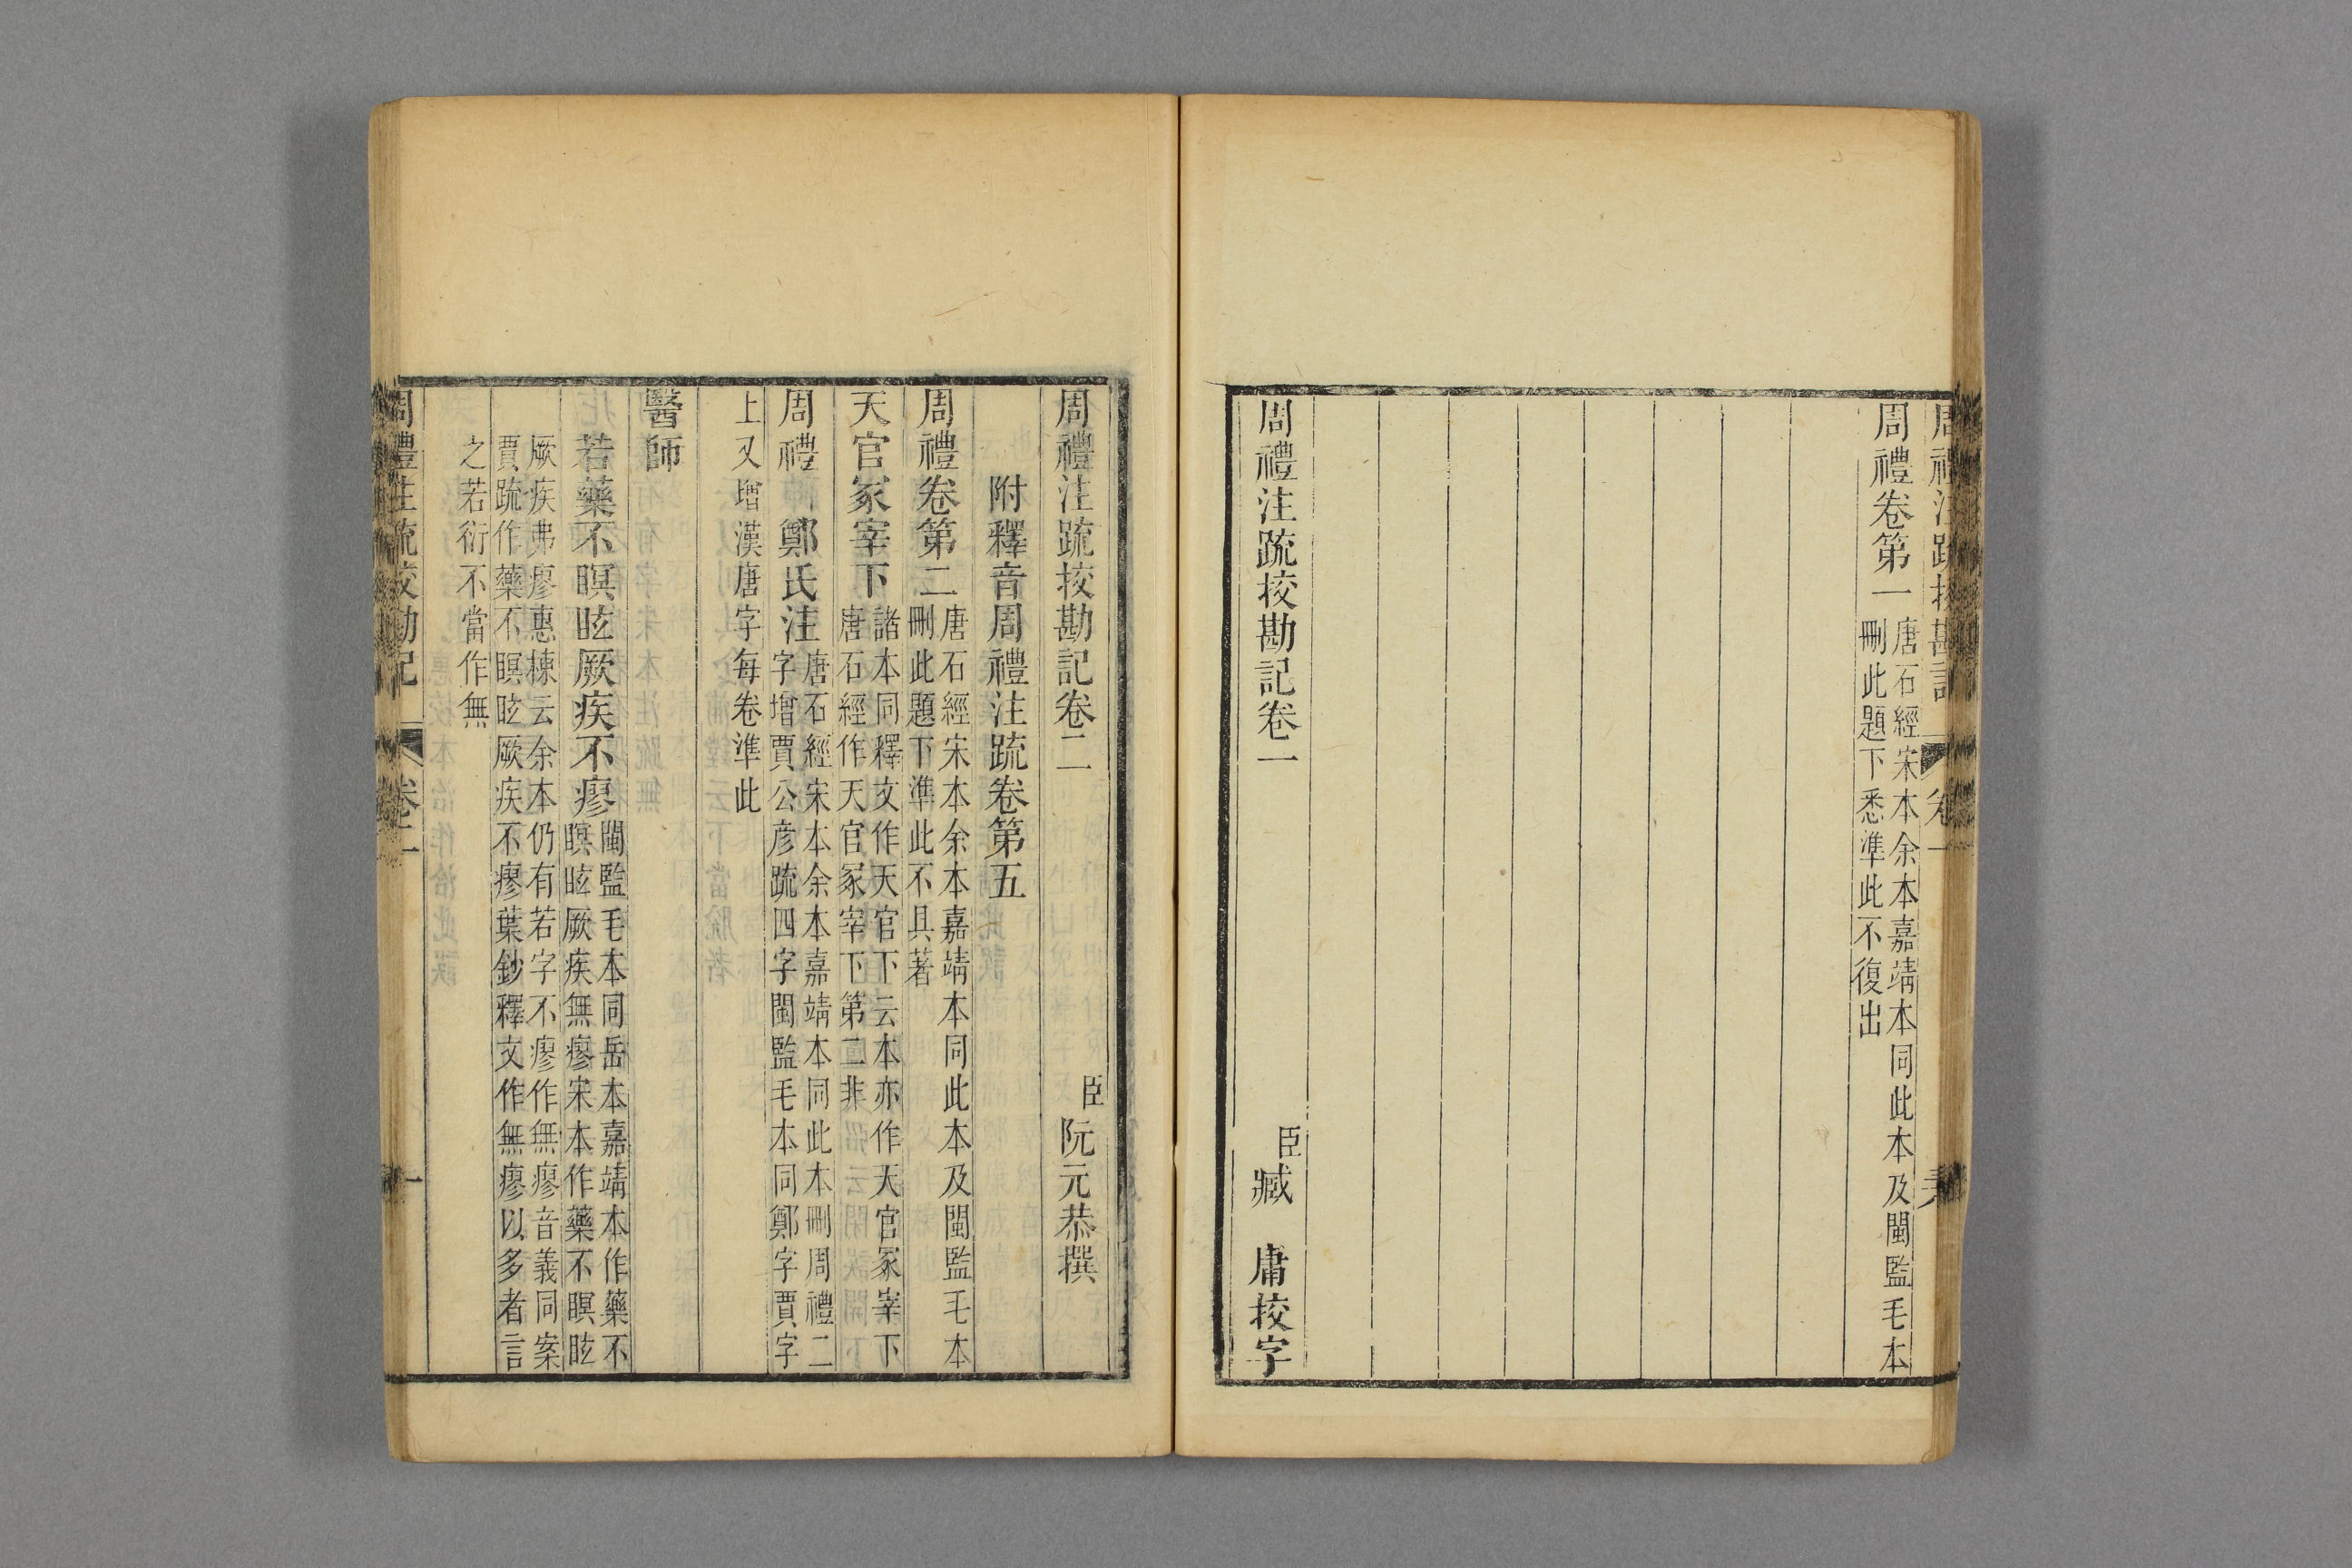 周禮卷第一唐石經宋本余本嘉靖本同此本及閩監毛本
刪此題下悉準此不復出
周禮注疏挍勘記卷一
臣臧庸挍字
周禮注疏挍勘記卷二
臣阮元恭撰
附釋音周禮注疏卷第五
周禮卷第二唐石經宋本余本嘉靖本同此本及閩監毛本
刪此題下準此不具著
天官冢宰下諸本同釋文作天官下云本亦作天官冢宰下
唐石經作天官冢宰下第二非
周禮 鄭氏注唐石經宋本余本嘉靖本同此本刪周禮二
字增賈公彦疏四字閩監毛本同鄭字賈字
上又增漢唐字每卷準此
醫師
若藥不瞑眩厥疾不瘳閩監毛本同岳本嘉靖本作藥不
瞑眩厥疾無瘳宋本作藥不瞑眩
厥疾弗瘳惠棟云余本仍有若字不瘳作無瘳音義同案
賈疏作藥不瞑眩厥疾不瘳葉鈔釋文作無瘳以多者言
之若衍不當作無
周禮注疏挍勘記 卷二 一